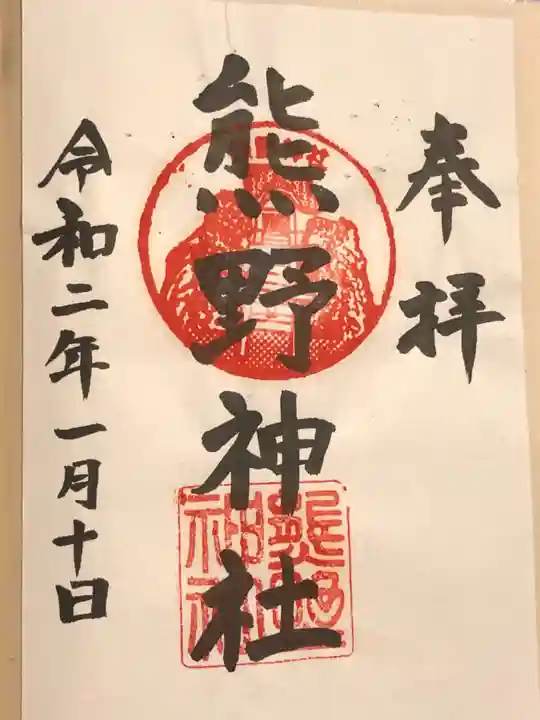 奉拝
熊野神社
令和二年一月十日